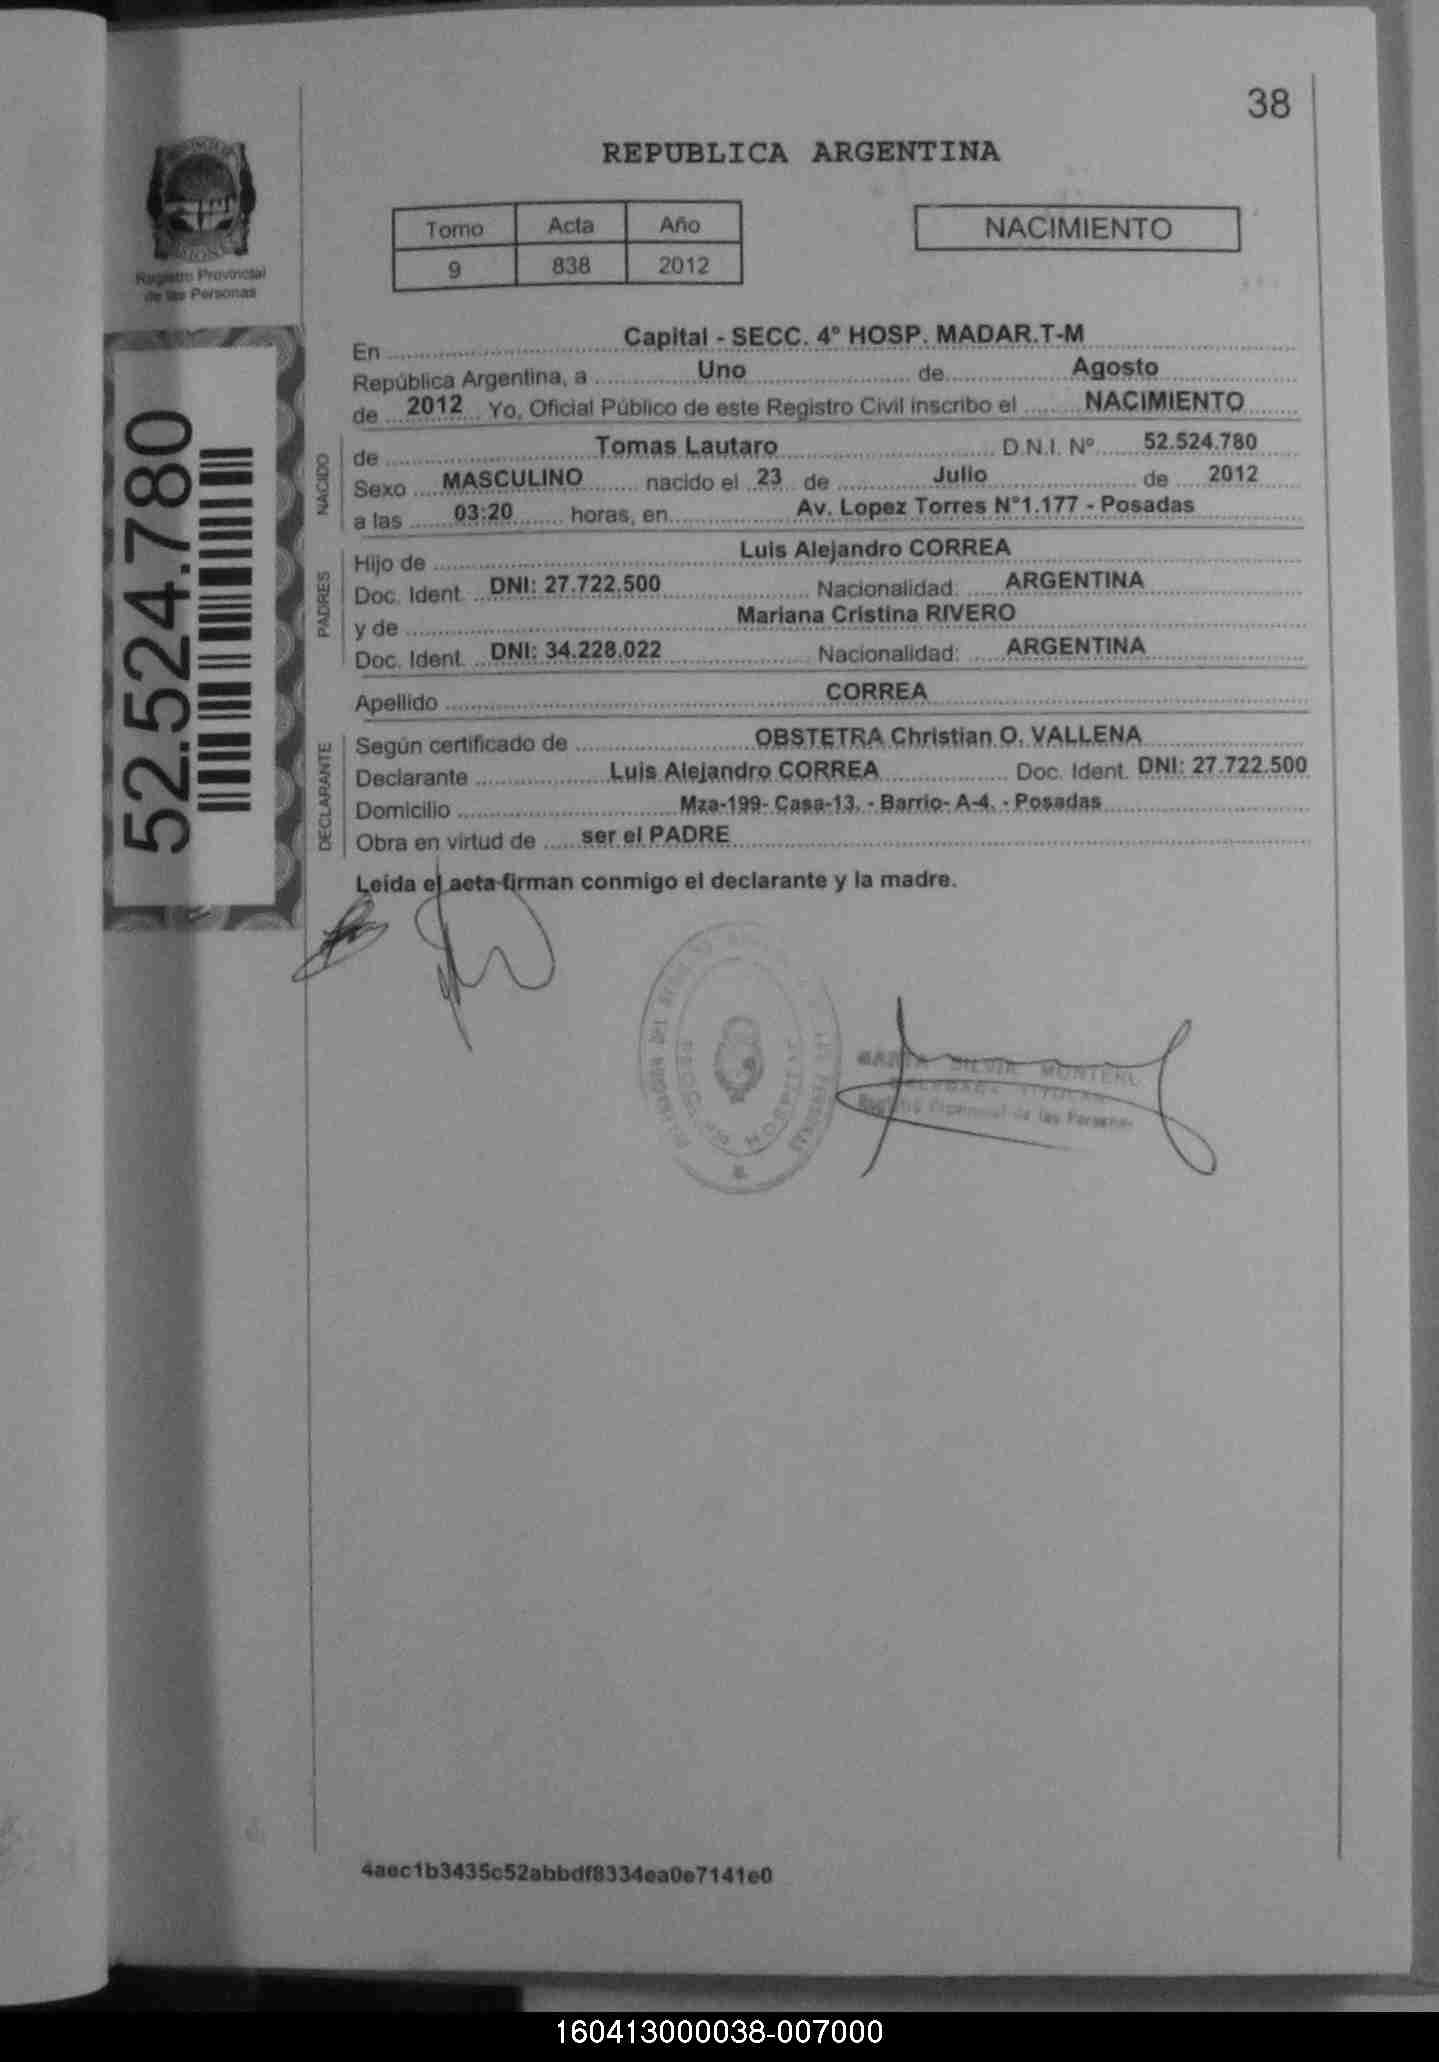 38
REPUBLICA ARGENTINA
Tomo Acta Año
9 838 2012
NACIMIENTO
Registro Provincial
de las Personas
52.524.780
En Capital - SECC. 4º HOSP. MADAR.T-M
República Argentina, a Uno de Agosto
de 2012 Yo, Oficial Público de este Registro Civil inscribo el NACIMIENTO
NACIDO
de Tomas Lautaro D.N.I. Nº 52.524.780
Sexo MASCULINO nacido el 23 de Julio de 2012
a las 03:20 horas, en Av. Lopez Torres N°1.177 - Posadas
PADRES
Hijo de Luis Alejandro CORREA
Doc. Ident. DNI: 27.722.500 Nacionalidad: ARGENTINA
y de Mariana Cristina RIVERO
Doc. Ident. DNI: 34.228.022 Nacionalidad: ARGENTINA
Apellido CORREA
DECLARANTE
Según certificado de OBSTETRA Christian O. VALLENA
Declarante Luis Alejandro CORREA Doc. Ident. DNI: 27.722.500
Domicilio Mza-199- Casa-13. - Barrio- A-4. - Posadas
Obra en virtud de ser el PADRE
Leida el acta firman conmigo el declarante y la madre.
SILVIA
de las Personas
4aec1b3435c52abbdf8334ea0e7141e0
160413000038-007000